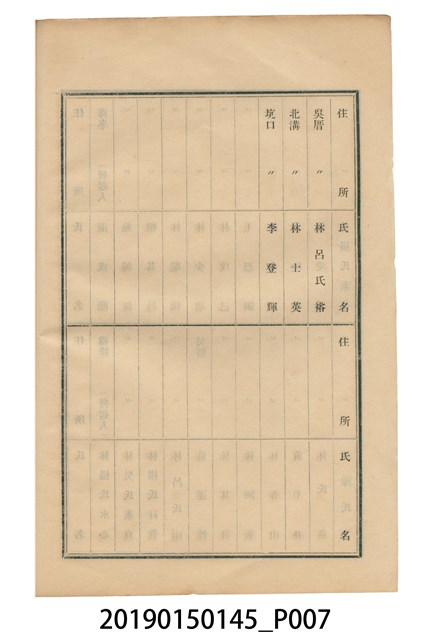 住所 氏名
吳厝 〃 林呂氏裕
北溝 〃 林士英
坑口 〃 李登輝
住所 氏名
20190150145_P007